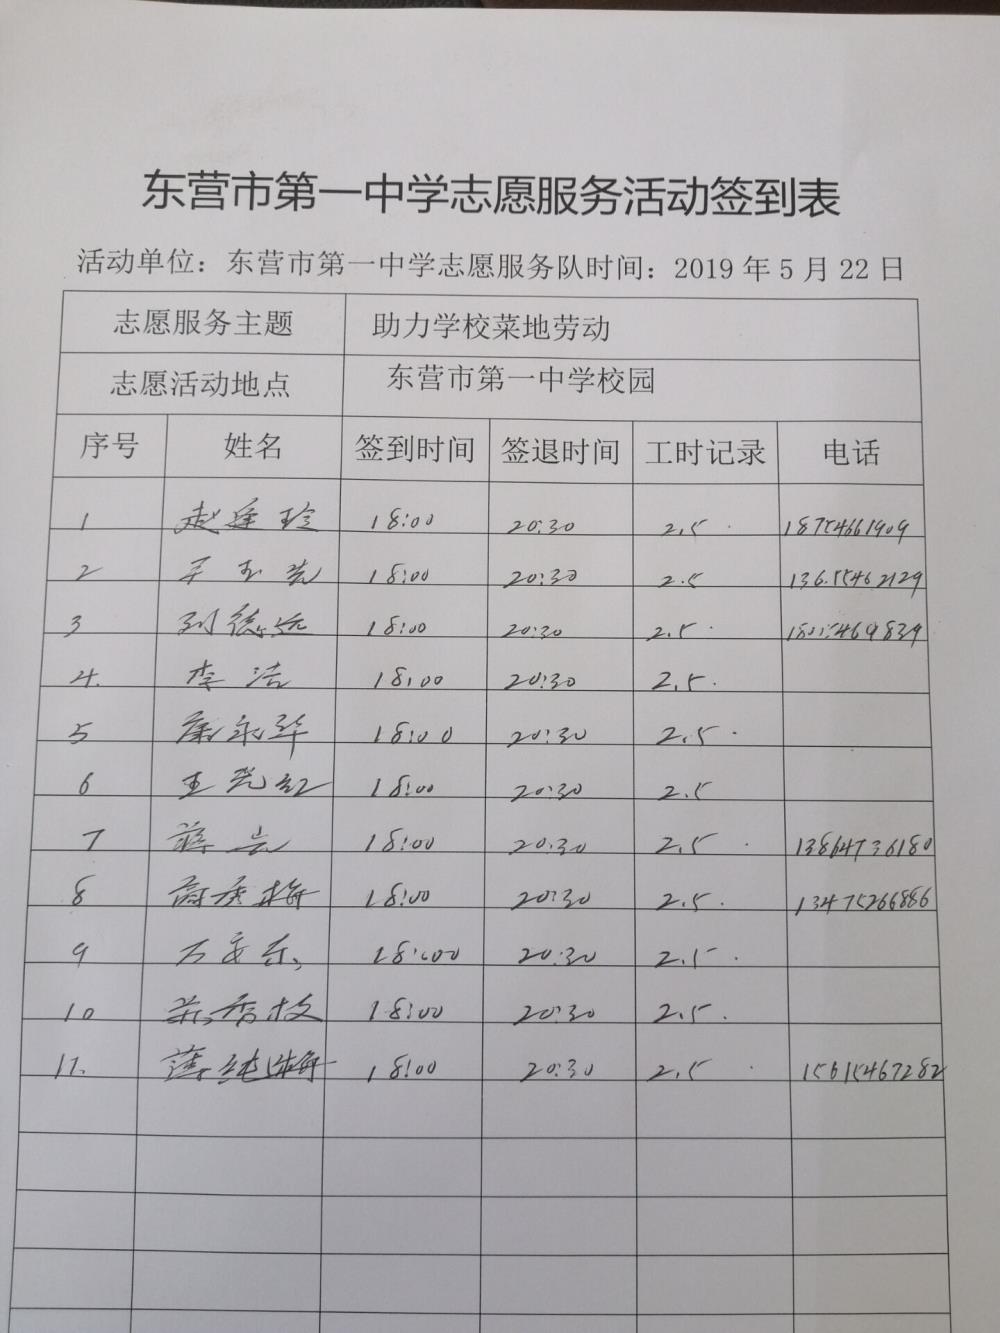 东营市第一中学志愿服务活动签到表
活动单位：东营市第一中学志愿服务队时间：2019 年 5 月 22 日
志愿服务主题 助力学校菜地劳动
志愿活动地点 东营市第一中学校园
序号 姓名 签到时间 签退时间 工时记录 电话
1 18:00 20:30 2.5 18754661909
2 18:00 20:30 2.5
3 刘德远 18:00 20:30 2.5
4. 李洁 18:00 20:30 2.5
5 18:00 20:30 2.5
6 18:00 20:30 2.5
7 18:00 20:30 2.5 13864736180
8 18:00 20:30 2.5 13475266886
9 18:00 20:30 2.5
10 18:00 20:30 2.5
11. 薄纯梅 18:00 20:30 2.5 15615467282